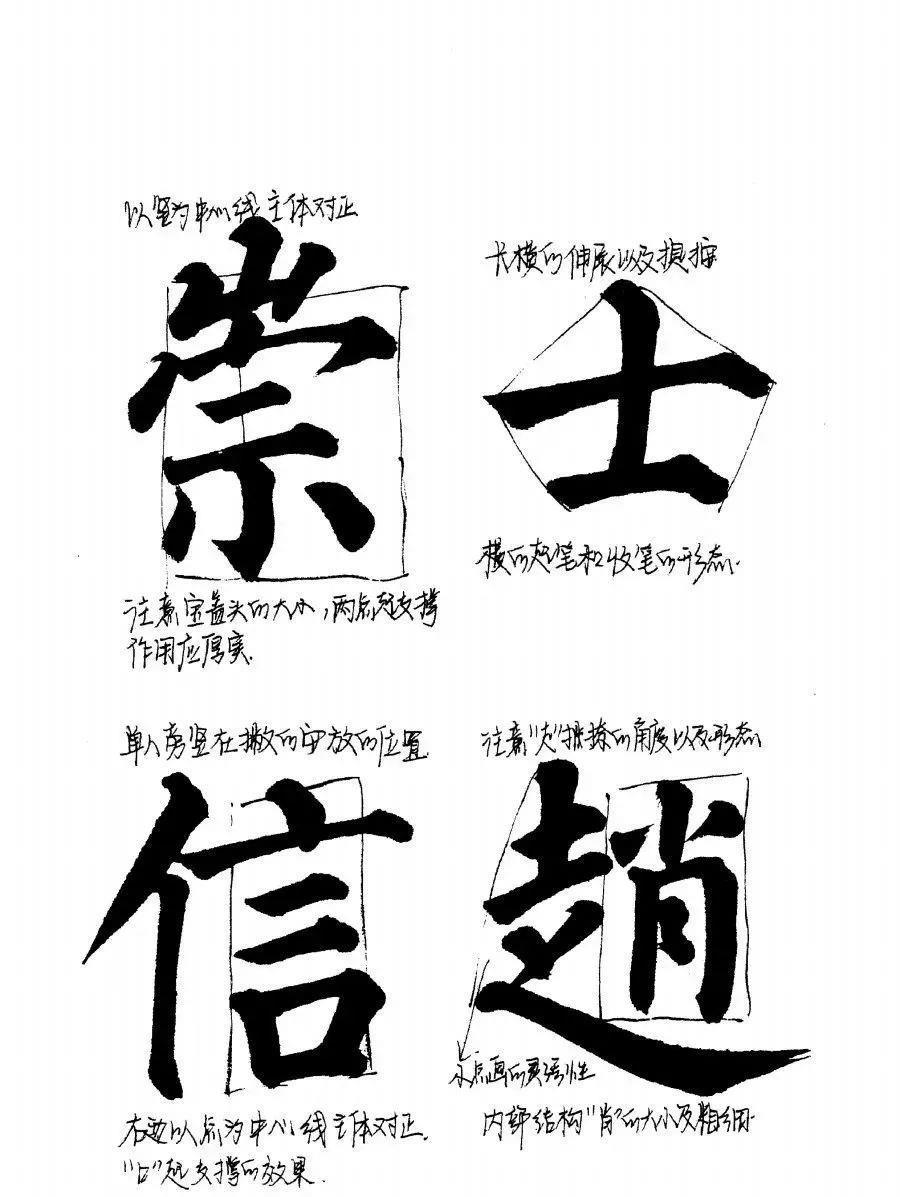 以竖为中心线主体对正
崇
注意宝盖头的大小，两点起支撑
作用应厚实.
长横的伸展以及提按
士
横的起笔和收笔的形态.
单人旁竖在撇的安放的位置
信
右边以点为中心线主体对正.
“口”起支撑的效果.
注意“走”捺的角度以及形态
趙
小点画的灵活性
内部结构“肖”的大小及粗细.